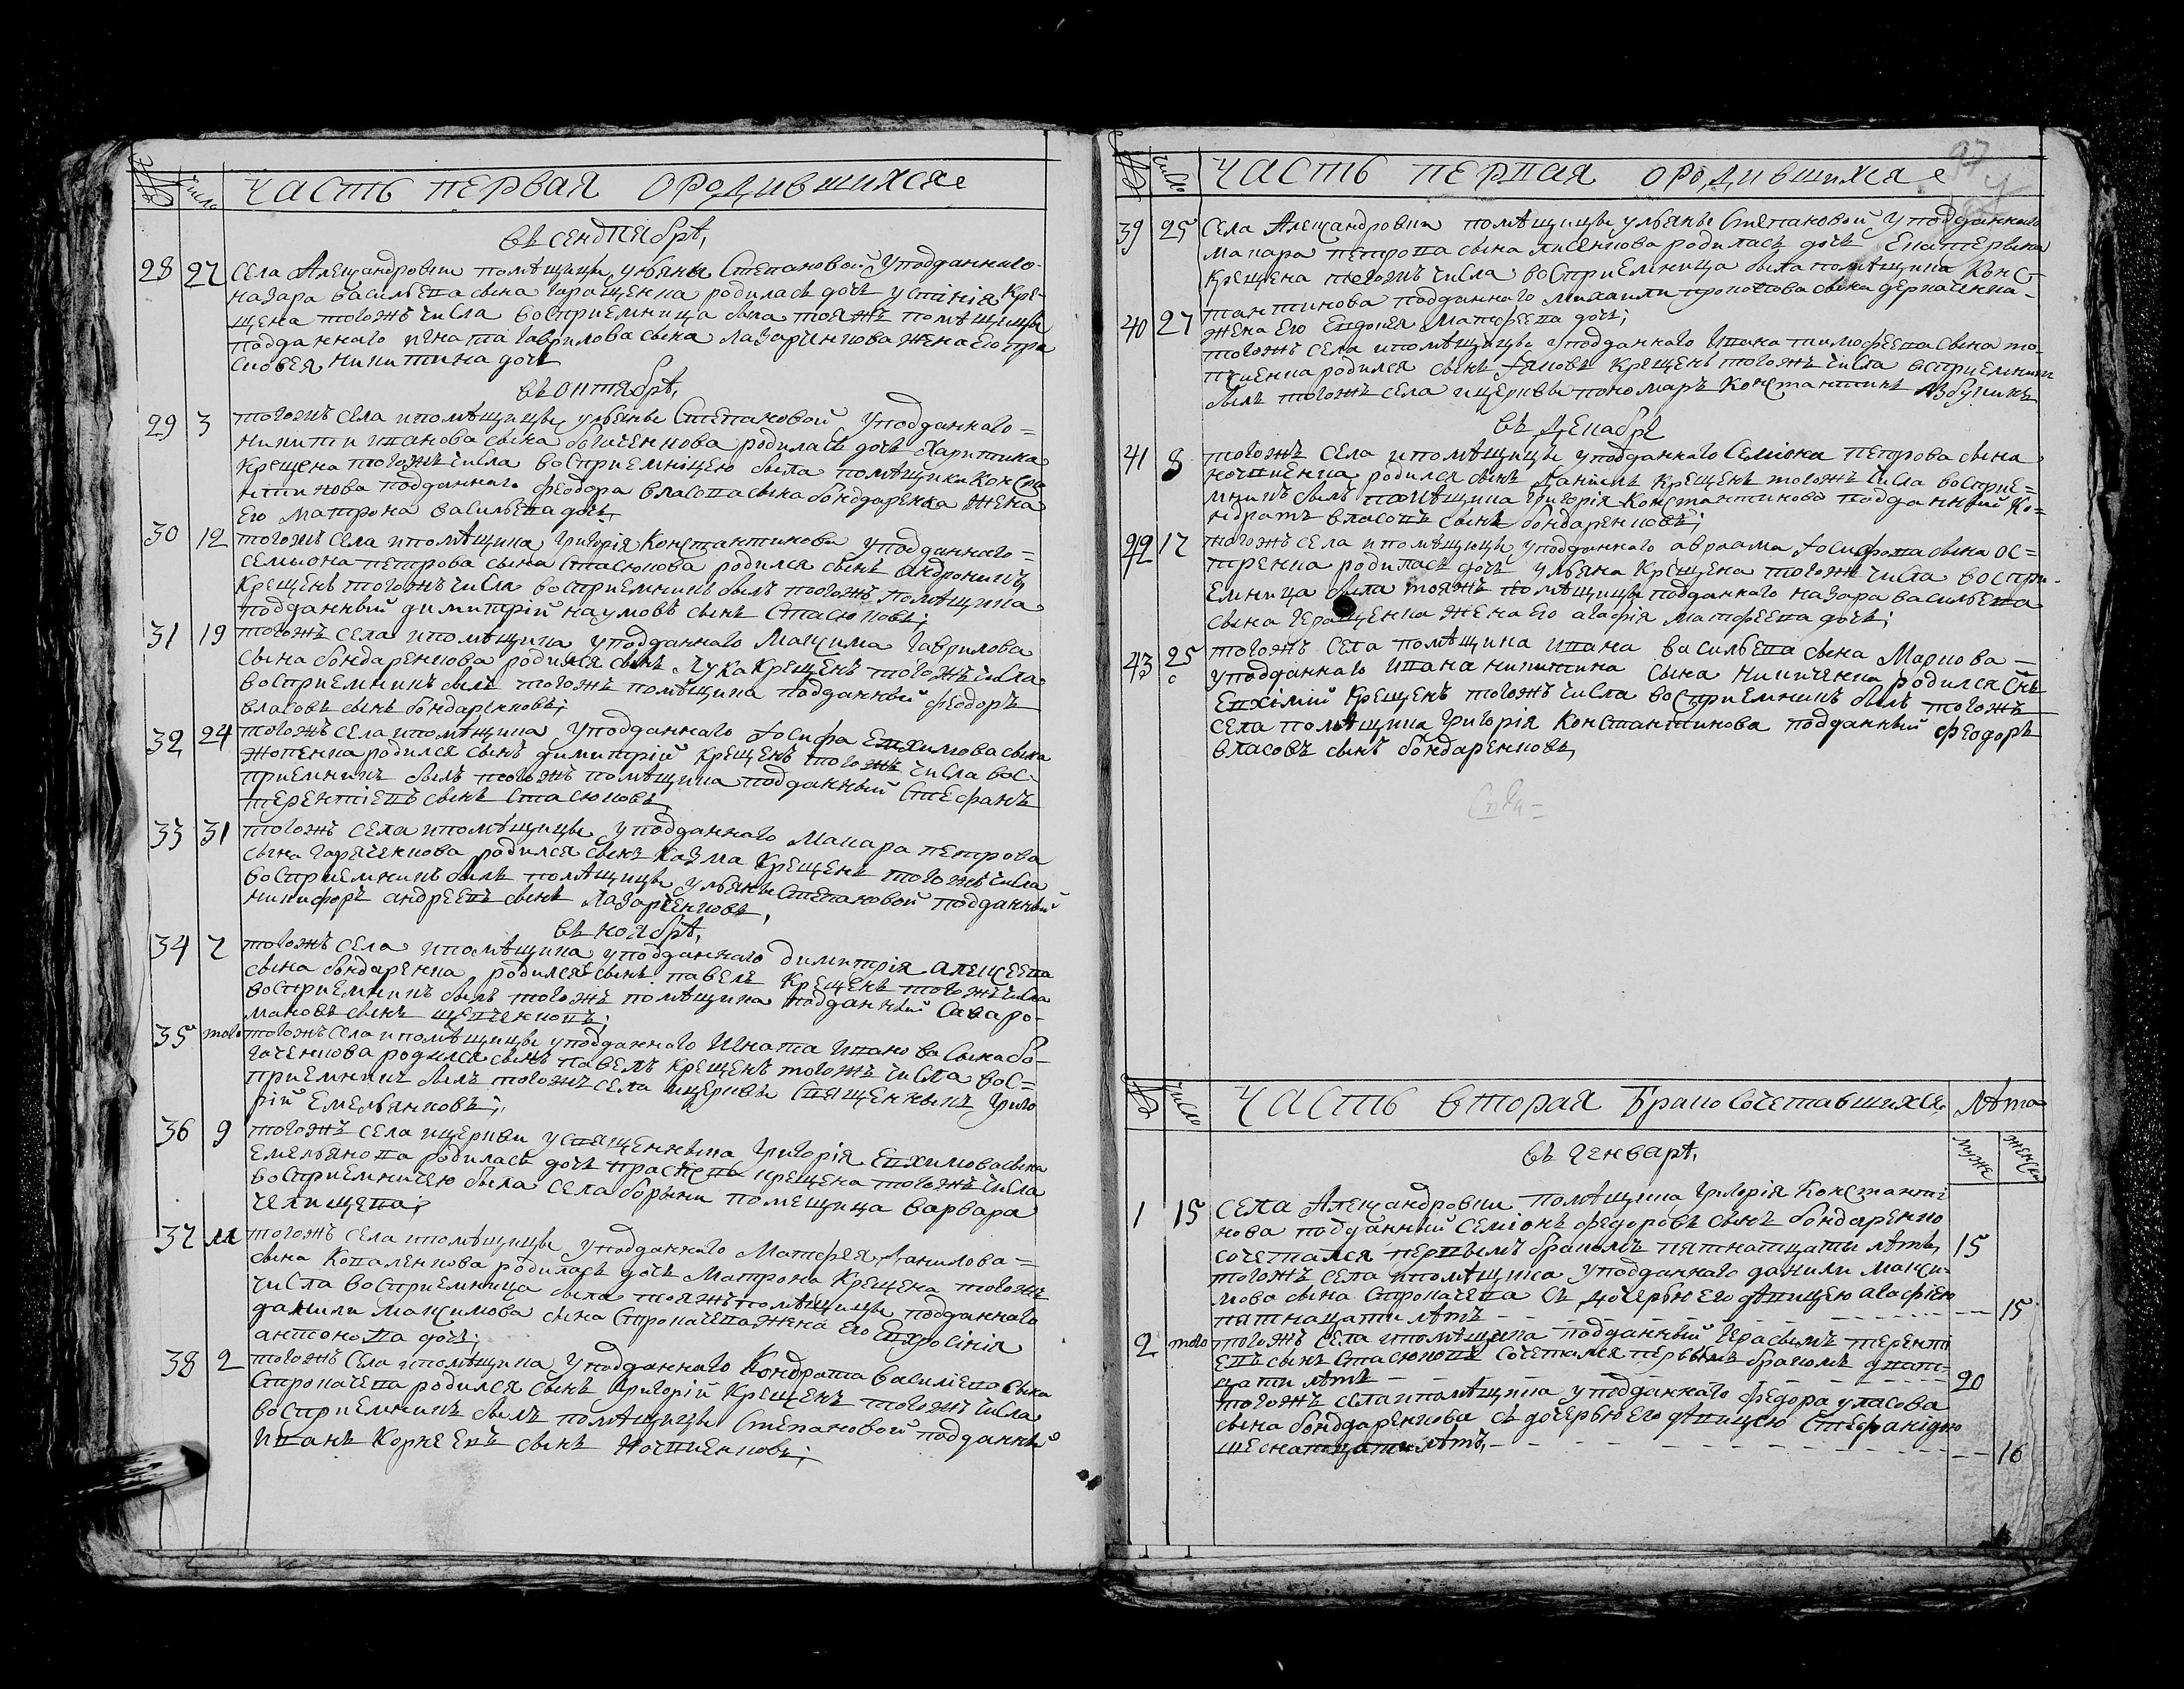 №
Число
ЧАСТЬ ПЕРВАЯ О РОДИВШИХСЯ
въ сендтябрѣ,
28 27 Села Александровки помѣщицы ульяны Степановой у подданнаго
назара васильева сына геращенка родилась дочь устінія кре-
щена тогожъ числа восприемница была тояжъ помѣщицы
подданнаго игната гаврилова сына лазаренкова жена его пра
сковея никитина дочь
въ октябрѣ,
29 3 тогожъ села и помѣщицы ульяны Степановой у подданнаго=
никити иванова сына богаченкова родилась дочь Харитина
крещена тогожъ числа восприемніцею была помѣщика Конста
нтинова подданнаго феодора власова сына бондаренка жена
его матрона васильева дочь,
30 12 тогожъ села и помѣщика григорія Константинова у подданнаго=
семиона петрова сына стасюкова родился сынъ андроникъ
крещенъ тогожъ числа восприемникъ былъ тогожъ помѣщика
подданный димитрій наумовъ сынъ Стасюковъ;
31 19 тогожъ села и помѣщика у подданнаго Максима гаврилова
сына бондаренкова родился сынъ лука крещенъ тогожъ числа
восприемникъ былъ тогожъ помѣщика подданный феодоръ
власовъ сынъ бондаренковъ;
32 24 тогожъ села и помѣщика у подданнаго іосифа Евхимова сына
родился сынъ димитрій крещенъ тогожъ числа вос-
приемникъ былъ тогожъ помѣщика подданный Стефанъ
терентіевъ сынъ Стасюковъ,
33 31 тогожъ села и помѣщицы у подданнаго Макара петрова
сына горяченкова родился сынъ козма крещенъ тогожъ числа
восприемникъ былъ помѣщицы ульяны Степановой подданный
никифоръ андреевъ сынъ лазаренковъ,
въ ноябрѣ,
34 7 тогожъ села и помѣщика у подданнаго димитрія алексеева
сына бондаренка родился сынъ павелъ крещенъ тогожъ числа
восприемникъ былъ тогожъ помѣщика подданный Сава ро-
мановъ сынъ
35 того тогожъ села и помѣщицы у подданнаго Игната Иванова сына бо-
гаченкова родился сынъ павелъ крещенъ тогожъ числа вос=
приемникъ былъ тогожъ села и церкви священникъ григо
рій Емельянковъ;
36 9 тогожъ села и церкви у священника григорія Евхимова сына
Емельянова родилась дочь крещена тогожъ числа
восприемницею была села борыни помещица варвара
челищева;
37 11 тогожъ села и помѣщицы у подданнаго Матфея данилова=
сына коваленкова родилась дочь Матрона крещена тогожъ
числа восприемница была тояжъ помѣщицы подданнаго
данила максимова сына Стропачева жена его Евхросінія
антонова дочь;
38 2 тогожъ села и помѣщика у подданнаго Кондрата василіева сына
Стропачева родился сынъ григорій крещенъ тогожъ числа
восприемникъ былъ помѣщицы Степановой подданный
иванъ корнеевъ сынъ
№
число
97
ЧАСТЬ ПЕРВАЯ О РОДИВШИХСЯ
39 25 Села Александровки помѣщицы ульяны Степановой у подданнаго
макара петрова сына лисенкова родилась дочь Екатерина
крещена тогожъ числа восприемница была помѣщика Конс-
тантинова подданнаго михаила прокопова сына дергаченка-
жена его Евдокея Матфеева дочь;
40 27 тогожъ села и помѣщицы у подданнаго ивана тимофеева сына
родился сынъ іяковъ крещенъ тогожъ числа восприемникъ
былъ тогожъ села и церкви пономаръ Константинъ
въ декабрѣ
41 8 тогожъ села и помѣщицы у подданнаго Семіона петрова сына
родился сынъ даніилъ крещенъ тогожъ числа восприе=
мникъ былъ помѣщика григорія Константинова подданный Ко=
ндратъ власовъ сынъ бондаренковъ;
42 17 тогожъ села и помѣщицы у подданнаго авраама іосифова сына ос=
тренка родилась дочь ульяна крещена тогожъ числа воспри-
емница была тояжъ помѣщицы подданнаго назара васильева
сына геращенка жена его агафія матфеева дочь;
43 25 тогожъ села помѣщика ивана васильева сына Маркова=
у подданнаго ивана никитина сына никиченка родился снъ
Евхімій крещенъ тогожъ числа восприемникъ былъ тогожъ
села помѣщика григорія Константинова подданный феодоръ
власовъ сынъ бондаренковъ,
№
число
ЧАСТЬ вторая Бракосочетавшихся
лѣта
въ генварѣ,
мужес
женск
1 15 Села Александровки помѣщика григорія Константи
нова подданный Семіонъ федоровъ сынъ бондаренко
сочетался первымъ бракомъ пятнатцати лѣтъ, 15
тогожъ села и помѣщика у подданнаго данили макси-
мова сына Стропачева съ дочерью его дѣвицею агафіею
пятнацати лѣтъ - - - 15
2 того тогожъ села и помѣщика подданный герасимъ теренті
евъ сынъ Стасюковъ сочетался первымъ бракомъ двати-
цати лѣтъ - - - 20
тогожъ села и помѣщика у подданнаго федора уласова
сына бондаренкова съ дочерью его дѣвицею Стефанідою
шеснатцати лѣтъ, - - - 16